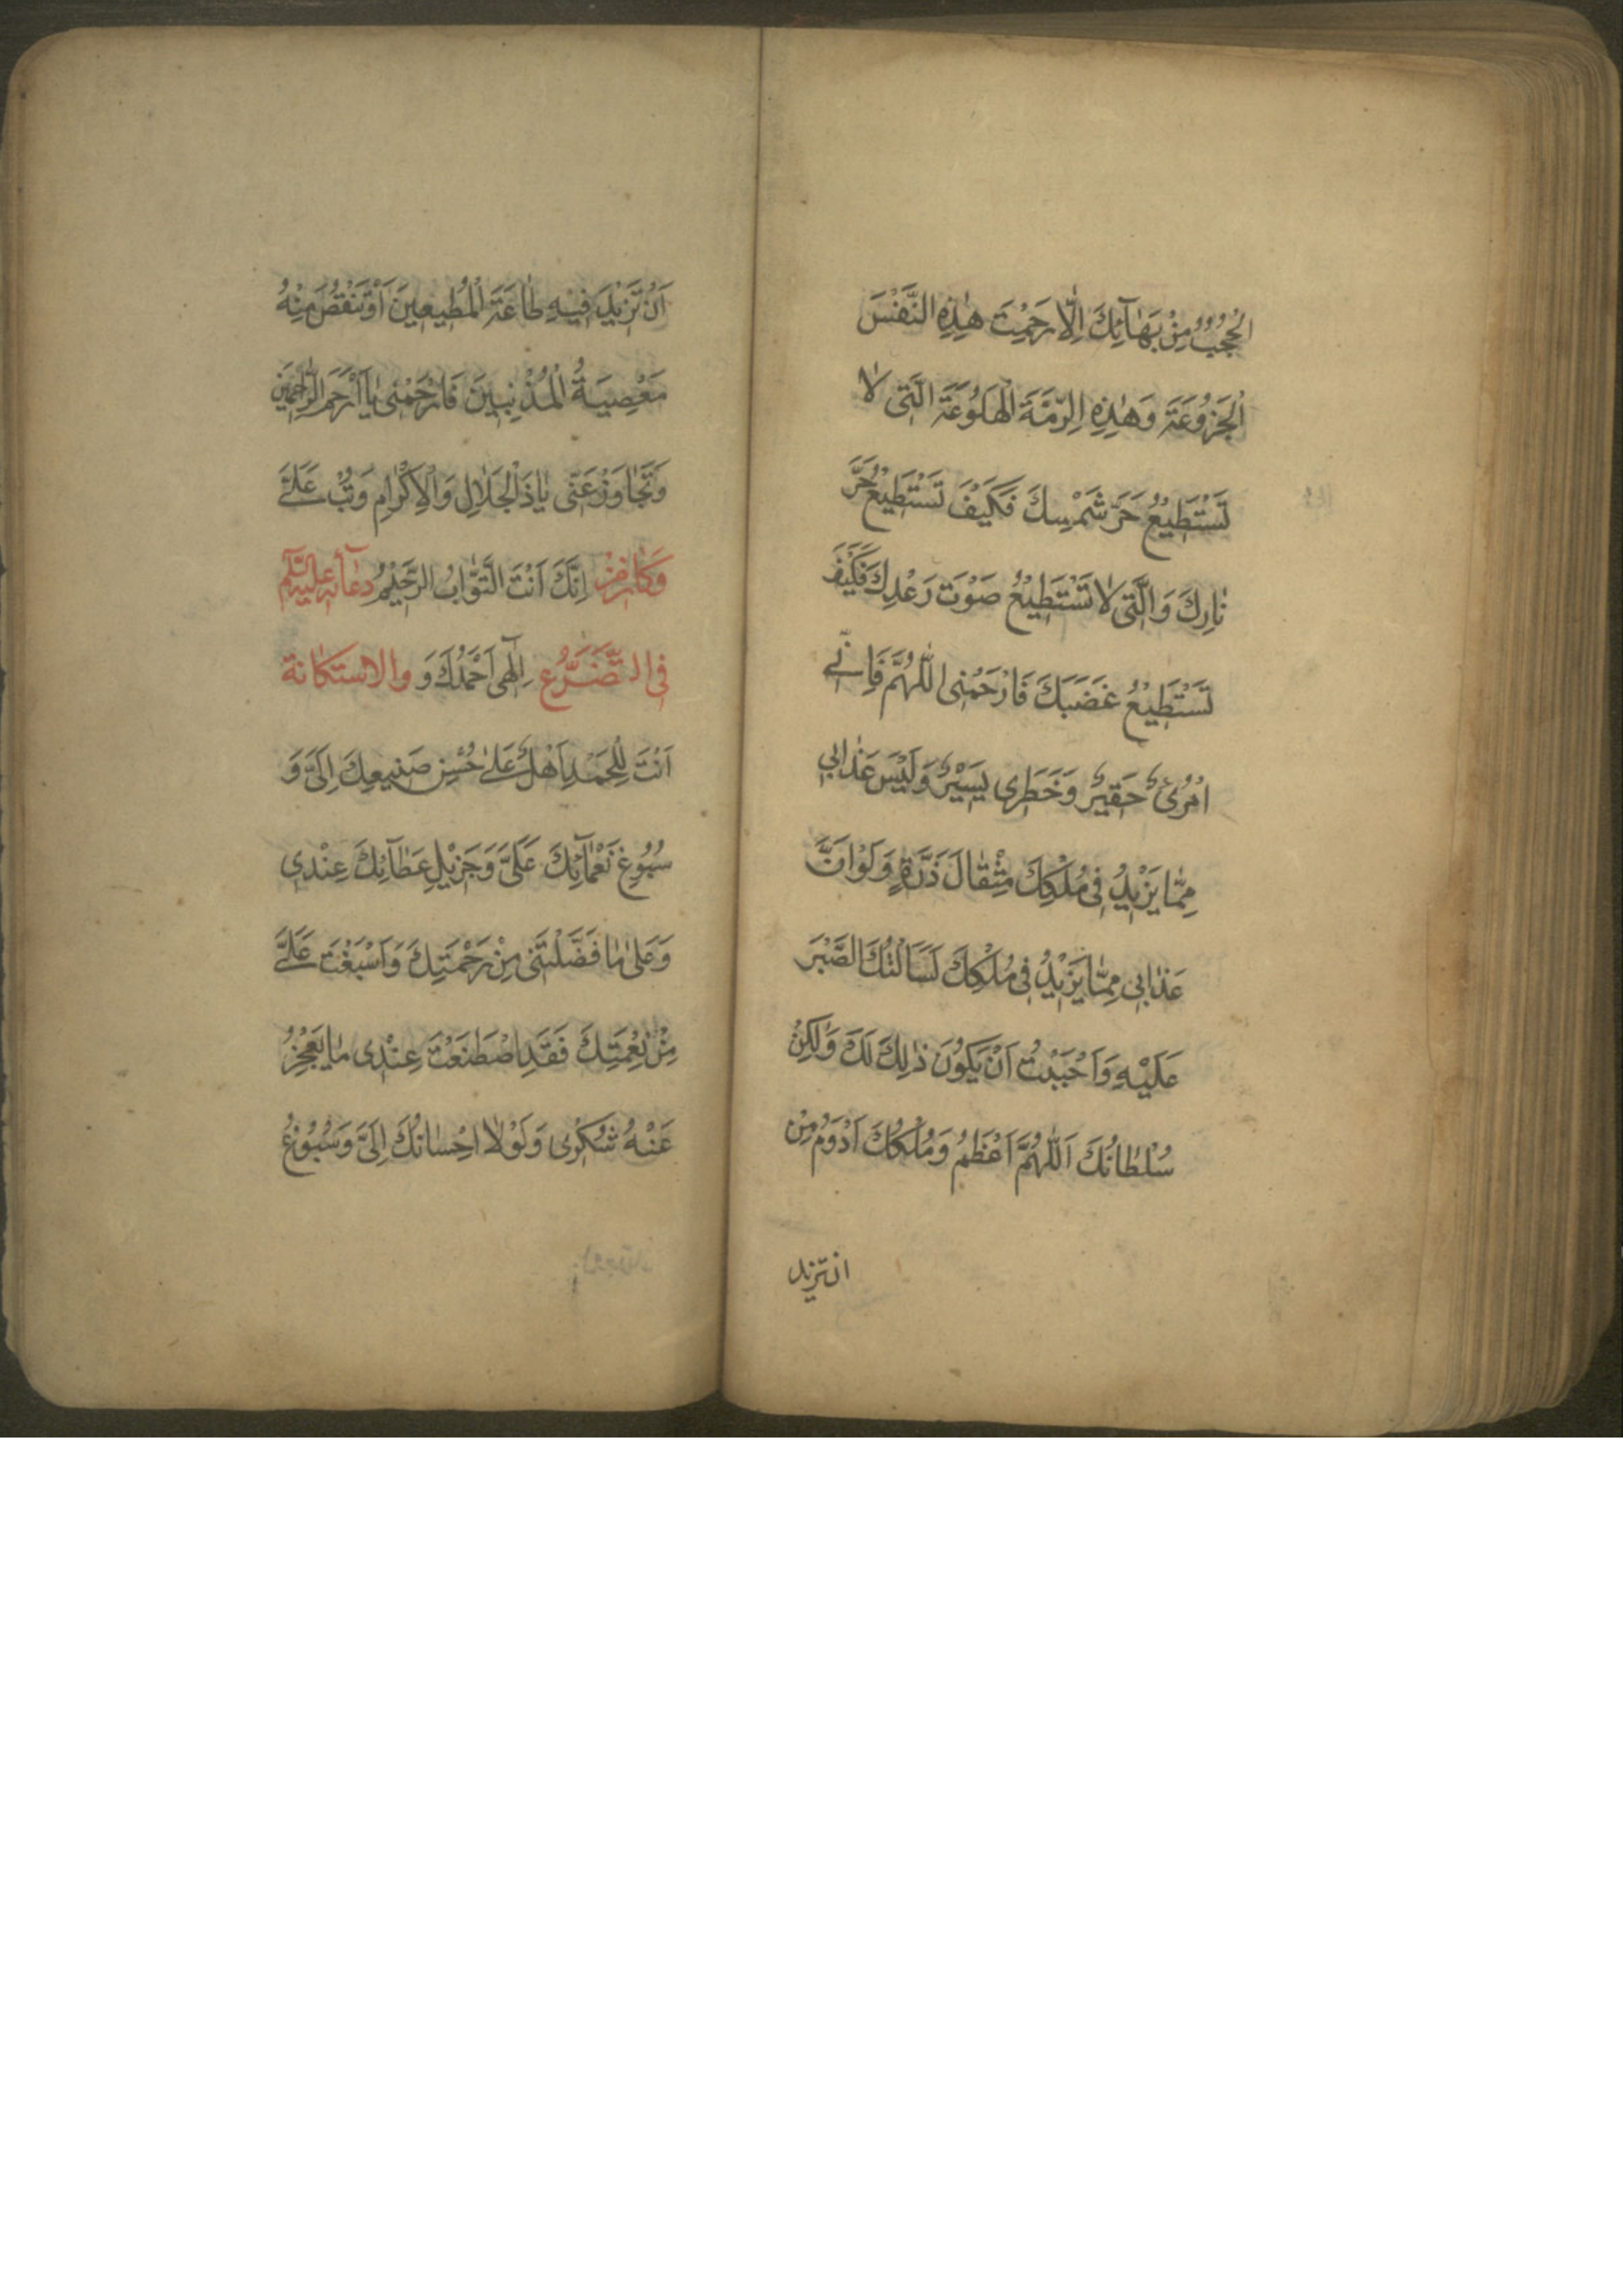 الْحُجُبُ مِنْ بَهٰآئِكَ اِلّٰا رَحِمْتَ هٰذِهِ النَّفْسَ
الْجَزُوْعَةَ وَهٰذِهِ الرِّمَّةَ الْهَلُوْعَةَ الَّتِى لٰا
تَسْتَطِيْعُ حَرَّ شَمْسِكَ فَكَيْفَ تَسْتَطِيْعُ حَرَّ
نٰارِكَ وَالَّتِى لٰا تَسْتَطِيْعُ صَوْتَ رَعْدِكَ فَكَيْفَ
تَسْتَطِيْعُ غَضَبَكَ فَارْحَمْنِى اللّٰهُمَّ فَاِنِّے
امْرُئٌ حَقِيْرٌ وَخَطَرِى يَسِيْرٌ وَلَيْسَ عَذٰابِى
مِمّٰا يَزْيِدُ فِى مُلْكِكَ مِثْقٰالَ ذَرَّةٍ وَلَوْ اَنَّ
عَذٰابِى مِمّٰا يَزْيِدُ فِى مُلْكِكَ لَسَاَلْتُكَ الصَّبْرَ
عَلَيْهِ وَاَحْبَبْتُ اَنْ يَكُوْنَ ذٰلِكَ لَكَ وَلٰكِنْ
سُلْطٰانُكَ اَللّٰهُمَّ اَعْظَمُ وَمُلْكُكَ اَدْوَمُ مِنْ
ان تزيد
اَنْ تَزْيِدَ فِيْهِ طٰاعَةَ الْمُطِيْعِيْنَ اَوْ تَنْقُصَ مِنْهُ
مَعْصِيَةُ الْمُذْنِبِيْنَ فَارْحَمْنِى يٰا اَرْحَمَ الرّٰاحِمِيْنَ
وَتَجٰاوَزْ عَنِّى يٰا ذَا الْجَلٰالِ وَالْاِكْرٰامِ وَتُبْ عَلَےَّ
اِنَّكَ اَنْتَ التَّوّٰابُ الرَّحِيْمُ وَكٰانَ مِنْ دُعٰآئِهِ عليه السّلم
فِى التَّضَرُّعِ والاستكانة اِلٰهِى اَحْمَدُكَ وَ
اَنْتَ لِلْحَمْدِ اَهْلٌ عَلٰے حُسْنِ صَنِيْعِكَ اِلَىَّ وَ
سُبُوْغِ نَعْمٰآئِكَ عَلَىَّ وَجَزِيْلِ عَطٰآئِكَ عِنْدِى
وَعَلٰى مٰا فَضَّلْتَنِى مِنْ رَحْمَتِكَ وَاَسْبَغْتَ عَلَےَّ
مِنْ نِعْمَتِكَ فَقَدِ اصْطَنَعْتَ عِنْدِى مٰا يَعْجِزُ
عَنْهُ شُكْرِى وَلَوْلٰا اِحْسٰانُكَ اِلَىَّ وَسُبُوْغُ